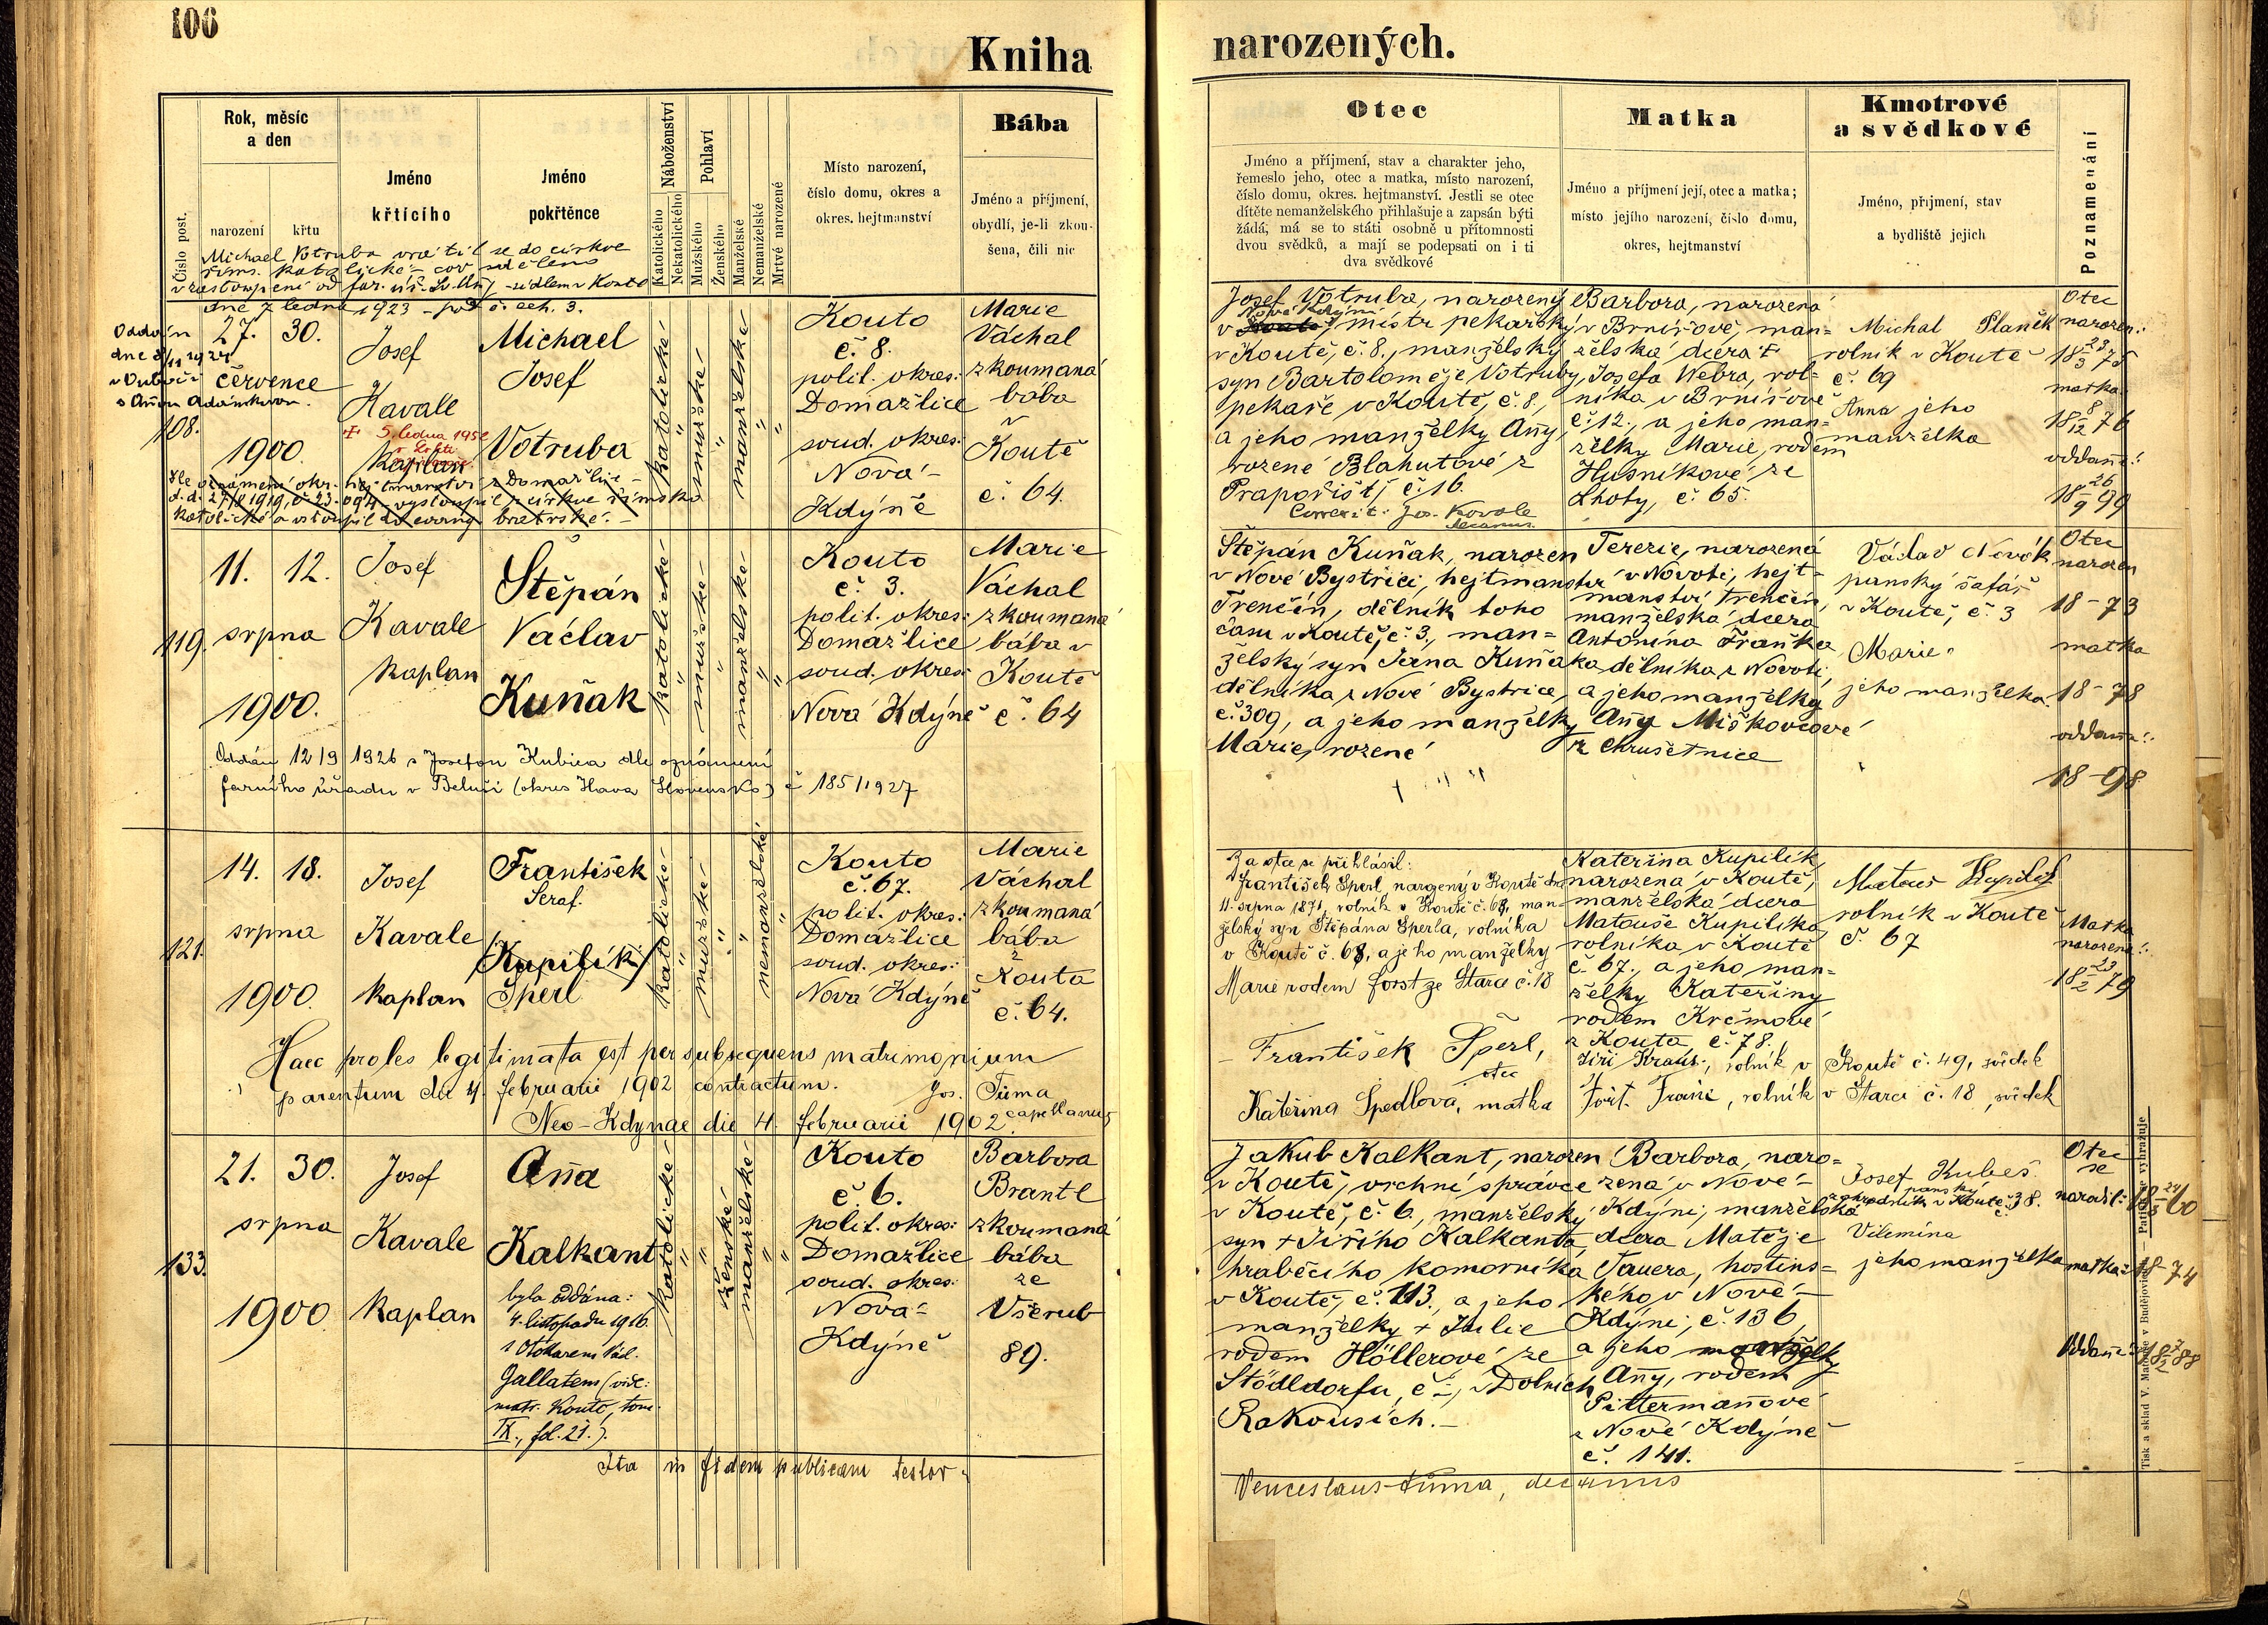 106
Kniha
narozených.
Číslo post.
Rok, měsíc
a den
narození
křtu
Jméno
křtícího
Jméno
pokřtěnce
Náboženství
Katolického
Nekatolického
Pohlaví
Mužského
Ženského
Manželské
Nemanželské
Mrtvě narozené
Místo narození,
číslo domu, okres a
okres. hejtmanství
Bába
Jméno a příjmení,
obydlí, je-li zkou-
šena, čili nic
Otec
Jméno a příjmení, stav a charakter jeho,
řemeslo jeho, otec a matka, místo narození,
číslo domu, okres. hejtmanství. Jestli se otec
dítěte nemanželského přihlašuje a zapsán býti
žádá, má se to státi osobně u přítomnosti
dvou svědků, a mají se podepsati on i ti
dva svědkové
Matka
Jméno a příjmení její, otec a matka;
místo jejího narození, číslo domu,
okres, hejtmanství
Kmotrové
a svědkové
Jméno, příjmení, stav
a bydliště jejich
Poznamenání
Michael Votruba vrátil se do církve
řims. katolické
dne 7 ledna 1923
Oddán
108.
27. 30.
července
1900.
Josef
Kavale
kaplan
5. ledna 1952
Michael
Josef
Votruba
katolické
mužské
manželské
Kouto
č. 8.
polit. okres:
Domažlice
soud. okres:
Nová
Kdýně
Marie
Váchal
zkoumaná
bába
v
Koutě
č. 64.
Josef Votruba, narozený
Nové Kdýni
v Koutě, mistr pekařský
v Koutě, č. 8., manželský
syn Bartoloměje Votruby,
pekaře v Koutě, č. 8.,
a jeho manželky Anny,
rozené Blahutové z
Prapořišť, č. 16.
Correxit: Jos. Kavale
Barbora, narozená
v Brnířově, man=
želská dcera †
Josefa Webra, rol=
níka v Brnířově
č. 12., a jeho man=
želky Marie, rodem
Husníkové, ze
Lhoty, č. 65.
Michal Planěk
rolník v Koutě
č. 69
Anna jeho
manželka
Otec
narozen:
18 23/3 75
matka
18 8/12 76
oddaní:
18 26/9 99
119.
11. 12.
srpna
1900.
Josef
Kavale
kaplan
Štěpán
Václav
Kuňak
katolické
mužské
manželské
Kouto
č. 3.
polit. okres:
Domažlice
soud. okres:
Nová Kdýně
Marie
Váchal
zkoumaná
bába v
Koutě
č. 64
Oddán 12/9 1926 s Josefou Kubica dle oznámení
farního úřadu v Beluši (okres Ilava Slovensko) č 185/1927
Štěpán Kuňak, narozen
v Nové Bystřici, hejtmanství
Trenčín, dělník toho
času v Koutě, č. 3., man=
želský syn Jana Kuňaka
dělníka z Nové Bystrice
č. 309, a jeho manželky
Marie, rozené
Terezie, narozená
v Novoti, hejt=
manství Trenčín,
manželská dcera
Antonína Fraňka
dělníka z Novoti,
a jeho manželky
Anny Miškovcové
z Chruštnice
Václav Novák
panský šafář
v Koutě, č. 3
Marie
jeho manželka.
Otec
narozen
18-73
matka
18-78
oddaní:
18-98
121.
14. 18.
srpna
1900.
Josef
Kavale
kaplan
František
Seraf.
Kupilík
Šperl
katolické
mužské
nemanželské
Kouto
č. 67.
polit. okres:
Domažlice
soud. okres:
Nová Kdýně
Marie
Váchal
zkoumaná
bába
z
Kouta
č. 64.
Haec proles legitimata est per subsequens matrimonium
parentum die 4. februarii 1902 contractum. Jos. Tůma
capellanus
Neo-Kdynae die 4. februarii 1902.
Za otce se přihlásil:
František Šperl, narozený v Koutě dne
11. srpna 1871, rolník v Koutě č. 68, man-
želský syn Štěpána Šperla, rolníka
v Koutě č. 68, a jeho manželky
Marie rodem Forst ze Starce č. 18
František Šperl,
otec
Kateřina Kupilík,
narozená v Koutě,
manželská dcera
Matouše Kupilíka,
rolníka v Koutě
č. 67., a jeho man=
želky Kateřiny
rodem Krčmové
z Kouta, č. 78.
Matouš Kupilík
rolník v Koutě
č. 67
Matka
narozena:
18 23/2 79
Jiří Kraus, rolník v Koutě č. 49, svědek
Kateřina Špedlova, matka
rolník v Starci č. 18, svědek
133.
21. 30.
srpna
1900
Josef
Kavale
kaplan
Anna
Kalkant
byla oddána:
4. listopadu 1916.
s Otokarem Vád.
Gallatem (vide:
matr. Kouto, tom.
IX., fol. 21.).
katolické
ženské
manželské
Kouto
č. 6.
polit. okres:
Domažlice
soud. okres:
Nová
Kdýně
Barbora
Brantl
zkoumaná
bába
ze
Všerub
89.
Jakub Kalkant, narozen
v Koutě, vrchní správce
v Koutě, č. 6., manželský
syn † Jiřího Kalkanta,
hraběcího komorníka
v Koutě, č. 113., a jeho
manželky † Julie
rodem Höllerové ze
Stödldorfu, č -, v Dolních
Rakousích.-
Barbora, naro=
zená v Nové
Kdýni, manželská
dcera Matěje
Tauera, hostins=
kého v Nové
Kdýni, č. 136,
a jeho manželky
Anny, rodem
Pittermannové
z Nové Kdýně
č. 141.
Josef Kubeš
panský
zahradník v Koutě č. 38.
Vilemína
jeho manželka
Otec
se
narodil: 18 24/3 60
matka: 18-74
Oddaní: 18 7/2 88
Ita in fidem publicam testor.
Venceslaus Tůma, decanus
Tisk a sklad V. Matouše v Budějovicích. — Patisk se vyhražuje